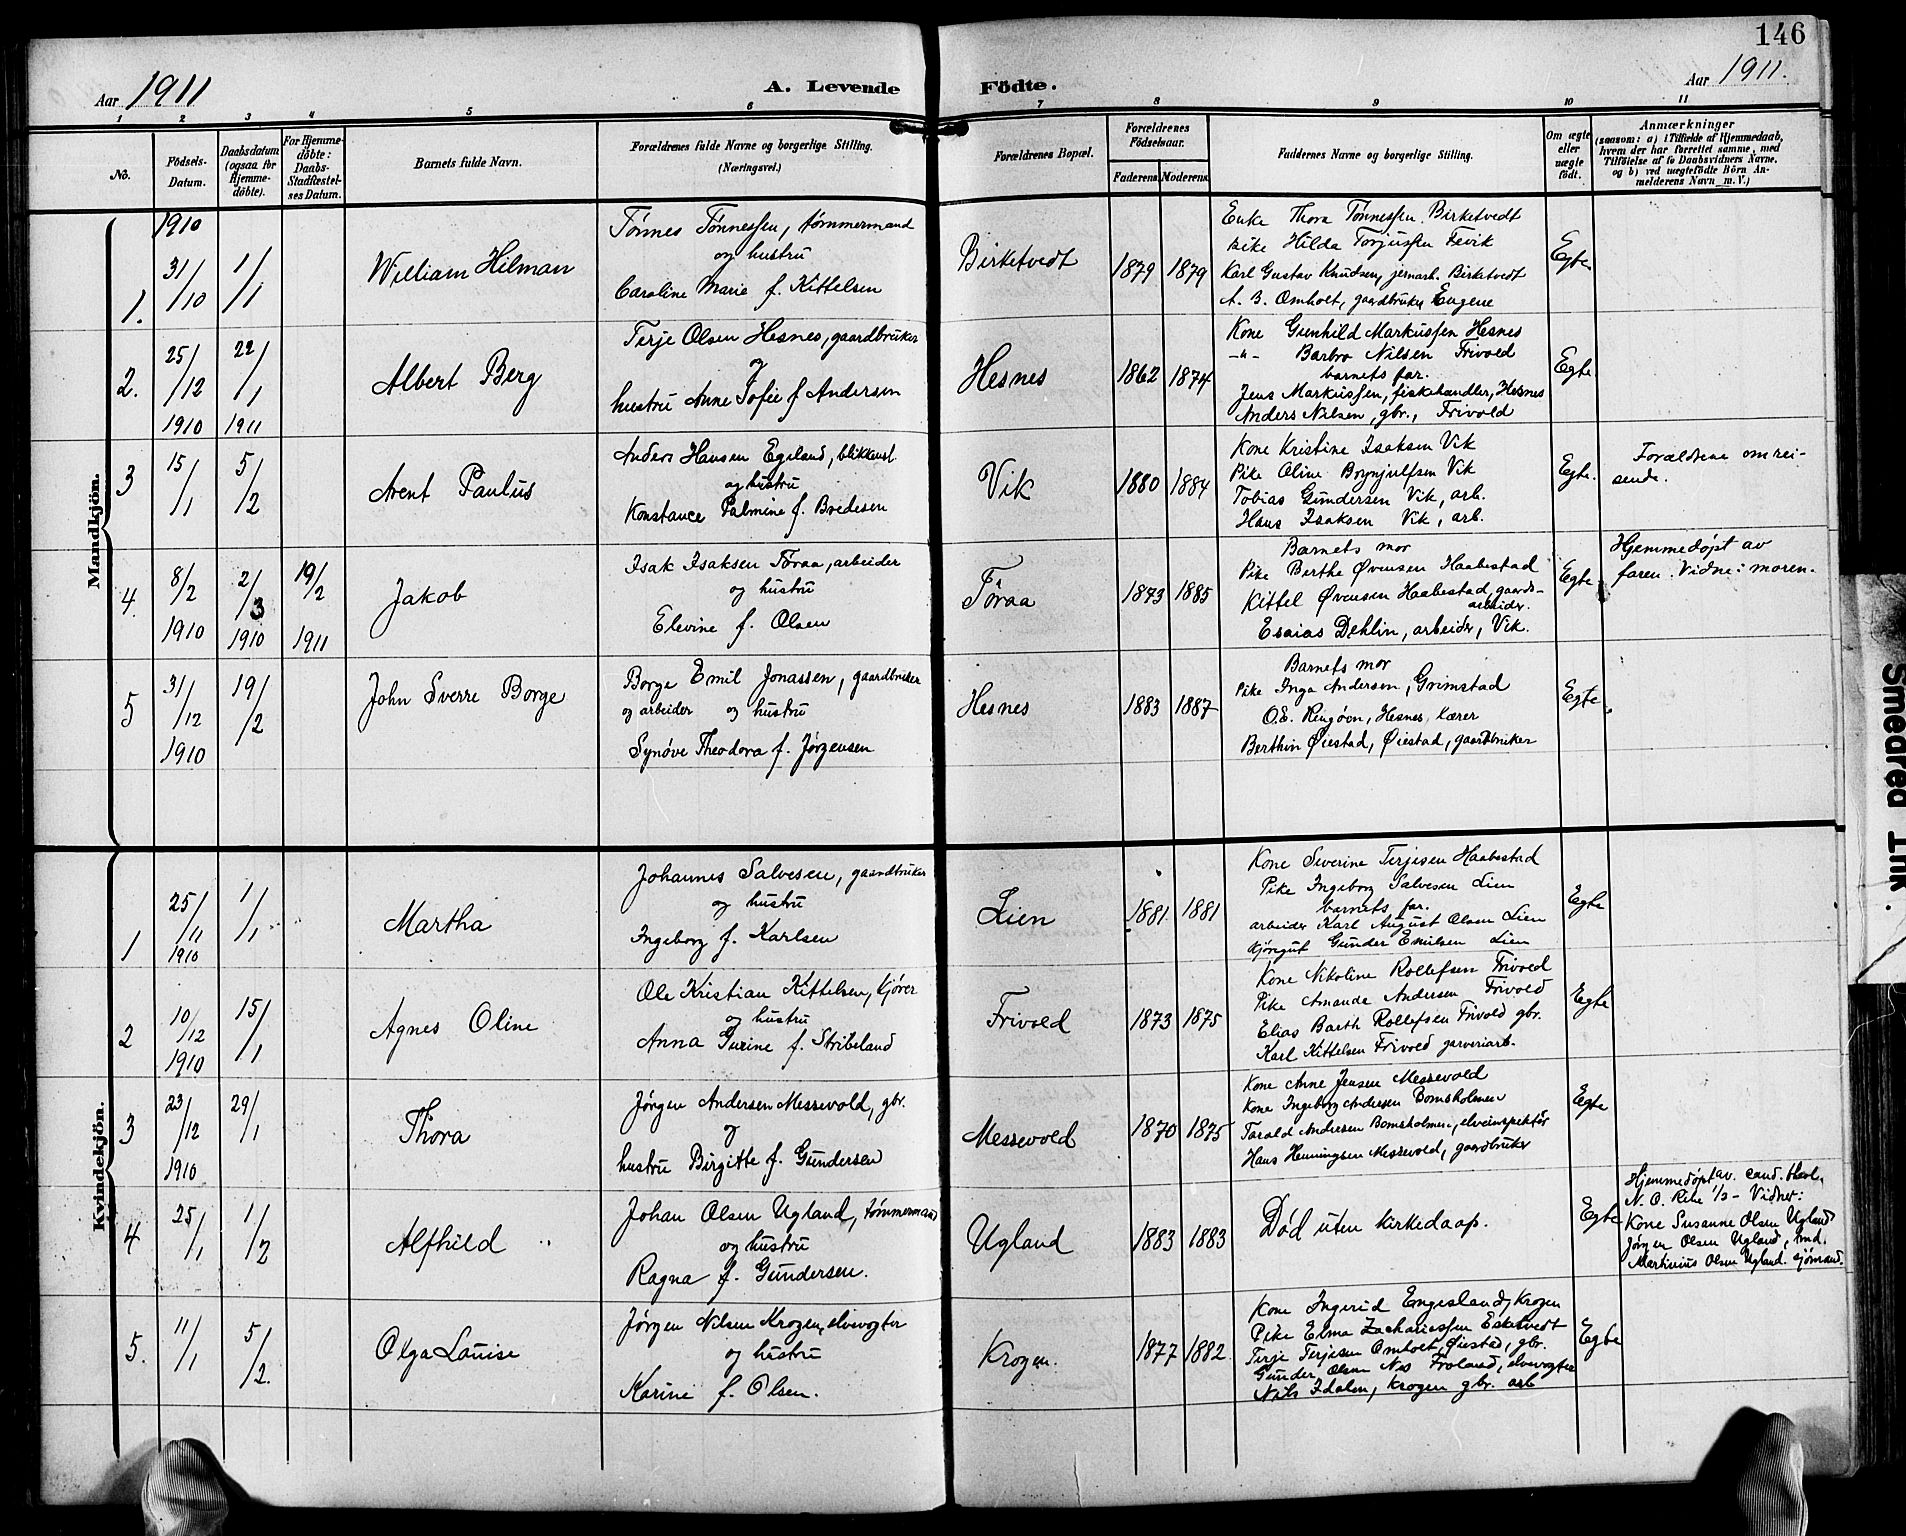 146
Aar 1911
A. Levende Födte.
Aar 1911.
1 2 3 4 5 6 7 8 9 10 11
No.
Födsels-Datum.
Daabsdatum (ogsaa for Hjemme-döbte).
For Hjemme-döbte: Daabs-Stadfæstel-ses Datum.
Barnets fulde Navn.
Forældrenes fulde Navne og borgerlige Stilling.
(Næringsvei.)
Forældrenes Bopæl.
Forældrenes Födselsaar.
Faderens. Moderens.
Faddernes Navne og borgerlige Stilling.
Om ægte eller uægte födt.
Anmærkninger
(saasom: a) i Tilfælde af Hjemmedaab,
hvem der har forrettet samme, med
Tilföielse af to Daabsvidners Navne.
og b) ved uægtefödte Börn An-
melderens Navn m. V.)
Mandkjön.
1. 1910 31/10 1/1 William Hilman
Tönnes Tönnessen, tømmermand
og hustru
Caroline Marie f. Kittelsen
Birketvedt 1879 1879
Enke Thora Tönnessen Birketvedt
Pike Hilda Torjussen Fevik
Karl Gustav Knudsen, jernarb. Birketvedt
A. B. Omholt, gaardbruker Eugene
Egte
2. 25/12 1910 22/1 1911 Albert Berg
Terje Olsen Hesnes, gaardbruker
og
hustru Anne Tofie f Andersen
Hesnes 1862 1874
Kone Gunhild Markussen Hesnes
-"- Barbro Nilsen Frivold
barnets far.
Jens Markussen, fiskehandler, Hesnes
Anders Nilsen, gbr., Frivold
Egte
3 15/1 5/2 Arent Paulus
Anders Hansen Egeland, blikkensl.
og hustru
Konstance Palmine f. Bredesen
Vik 1880 1884
Kone Kristine Isaksen Vik
Pike Oline Brynjulfsen Vik
Tobias Gundersen Vik, arb.
Hans Isaksen Vik, arb.
Egte.
Forældrene omrei-
sende.
4. 8/2 1910 2/3 1910 19/2 1911 Jakob
Isak Isaksen Føraa, arbeider
og hustru
Elevine f. Olsen
Føraa 1873 1885
Barnets mor
Pike Berthe Øvensen Haabestad
Kittel Øvensen Haabestad, gaards-
arbeider.
Esaias Dehlin, arbeider, Vik.
Egte
Hjemmedøpt av
faren. Vidne: moren.
5 31/12 1910 19/2 John Sverre Borge
Borge Emil Jonassen, gaardbruker
og arbeider og hustru
Synöve Theodora f. Jørgensen
Hesnes 1883 1887
Barnets mor
Pike Inga Andersen, Grimstad
O.E. Ringöen, Hesnes, lærer
Berthin Øiestad, Øiestad, gaardbruker
Egte
Kvindekjön.
1 25/11 1910 1/1 Martha
Johannes Salvesen, gaardbruker
og hustru
Ingeborg f. Karlsen
Lien 1881 1881
Kone Severine Terjesen Haabestad
Pike Ingeborg Salvesen Lien
barnets far.
arbeider Karl August Olsen Lien
kjøregut Gunder Emilsen Lien
Egte
2 10/12 1910 15/1 Agnes Oline
Ole Kristian Kittelsen, kjører
og hustru
Anna Gurine f. Stribeland
Frivold 1873 1875
Kone Nikoline Rollefsen Frivold
Pike Amanda Andersen Frivold
Elias Barth Rollefsen Frivold gbr.
Karl Kittelsen Frivold garveriarb.
Egte
3 23/12 1910 29/1 Thora
Jørgen Andersen Messevold, gbr.
og
hustru Birgitte f. Gundersen
Messevold 1870 1875
Kone Anne Jensen Messevold
Kone Ingeborg Andersen Bomsholmen
Tarald Andersen Bomsholmen, elveinspektør
Hans Henningsen Messevold, gaardbruker
Egte
4 25/1 1/2 Alfhild
Johan Olsen Ugland, tømmermand
og hustru
Ragna f. Gundersen.
Ugland 1883 1883
Død uten kirkedaap.
Egte
Hjemmedøpt av cand. theol.
N. O. 1/2 - Vidner:
Kone Susanne Olsen Ugland
Jørgen Olsen Ugland, tmd.
Martinius Olsen Ugland. sjömand.
5. 11/1 5/2. Olga Louise
Jørgen Nilsen Krogen, elvevogter
og hustru
Karine f. Olsen.
Krogen. 1877 1882
Kone Ingerid Engesland, Krogen
Pike Elma Zachariassen Eskevedt
Terje Terjesen Omholt, Øiestad, gbr.
Gunder Olsen Nes Froland, elvevogter
Nils Idalen, Krogen gbr. arb
Egte
Smeared Ink.